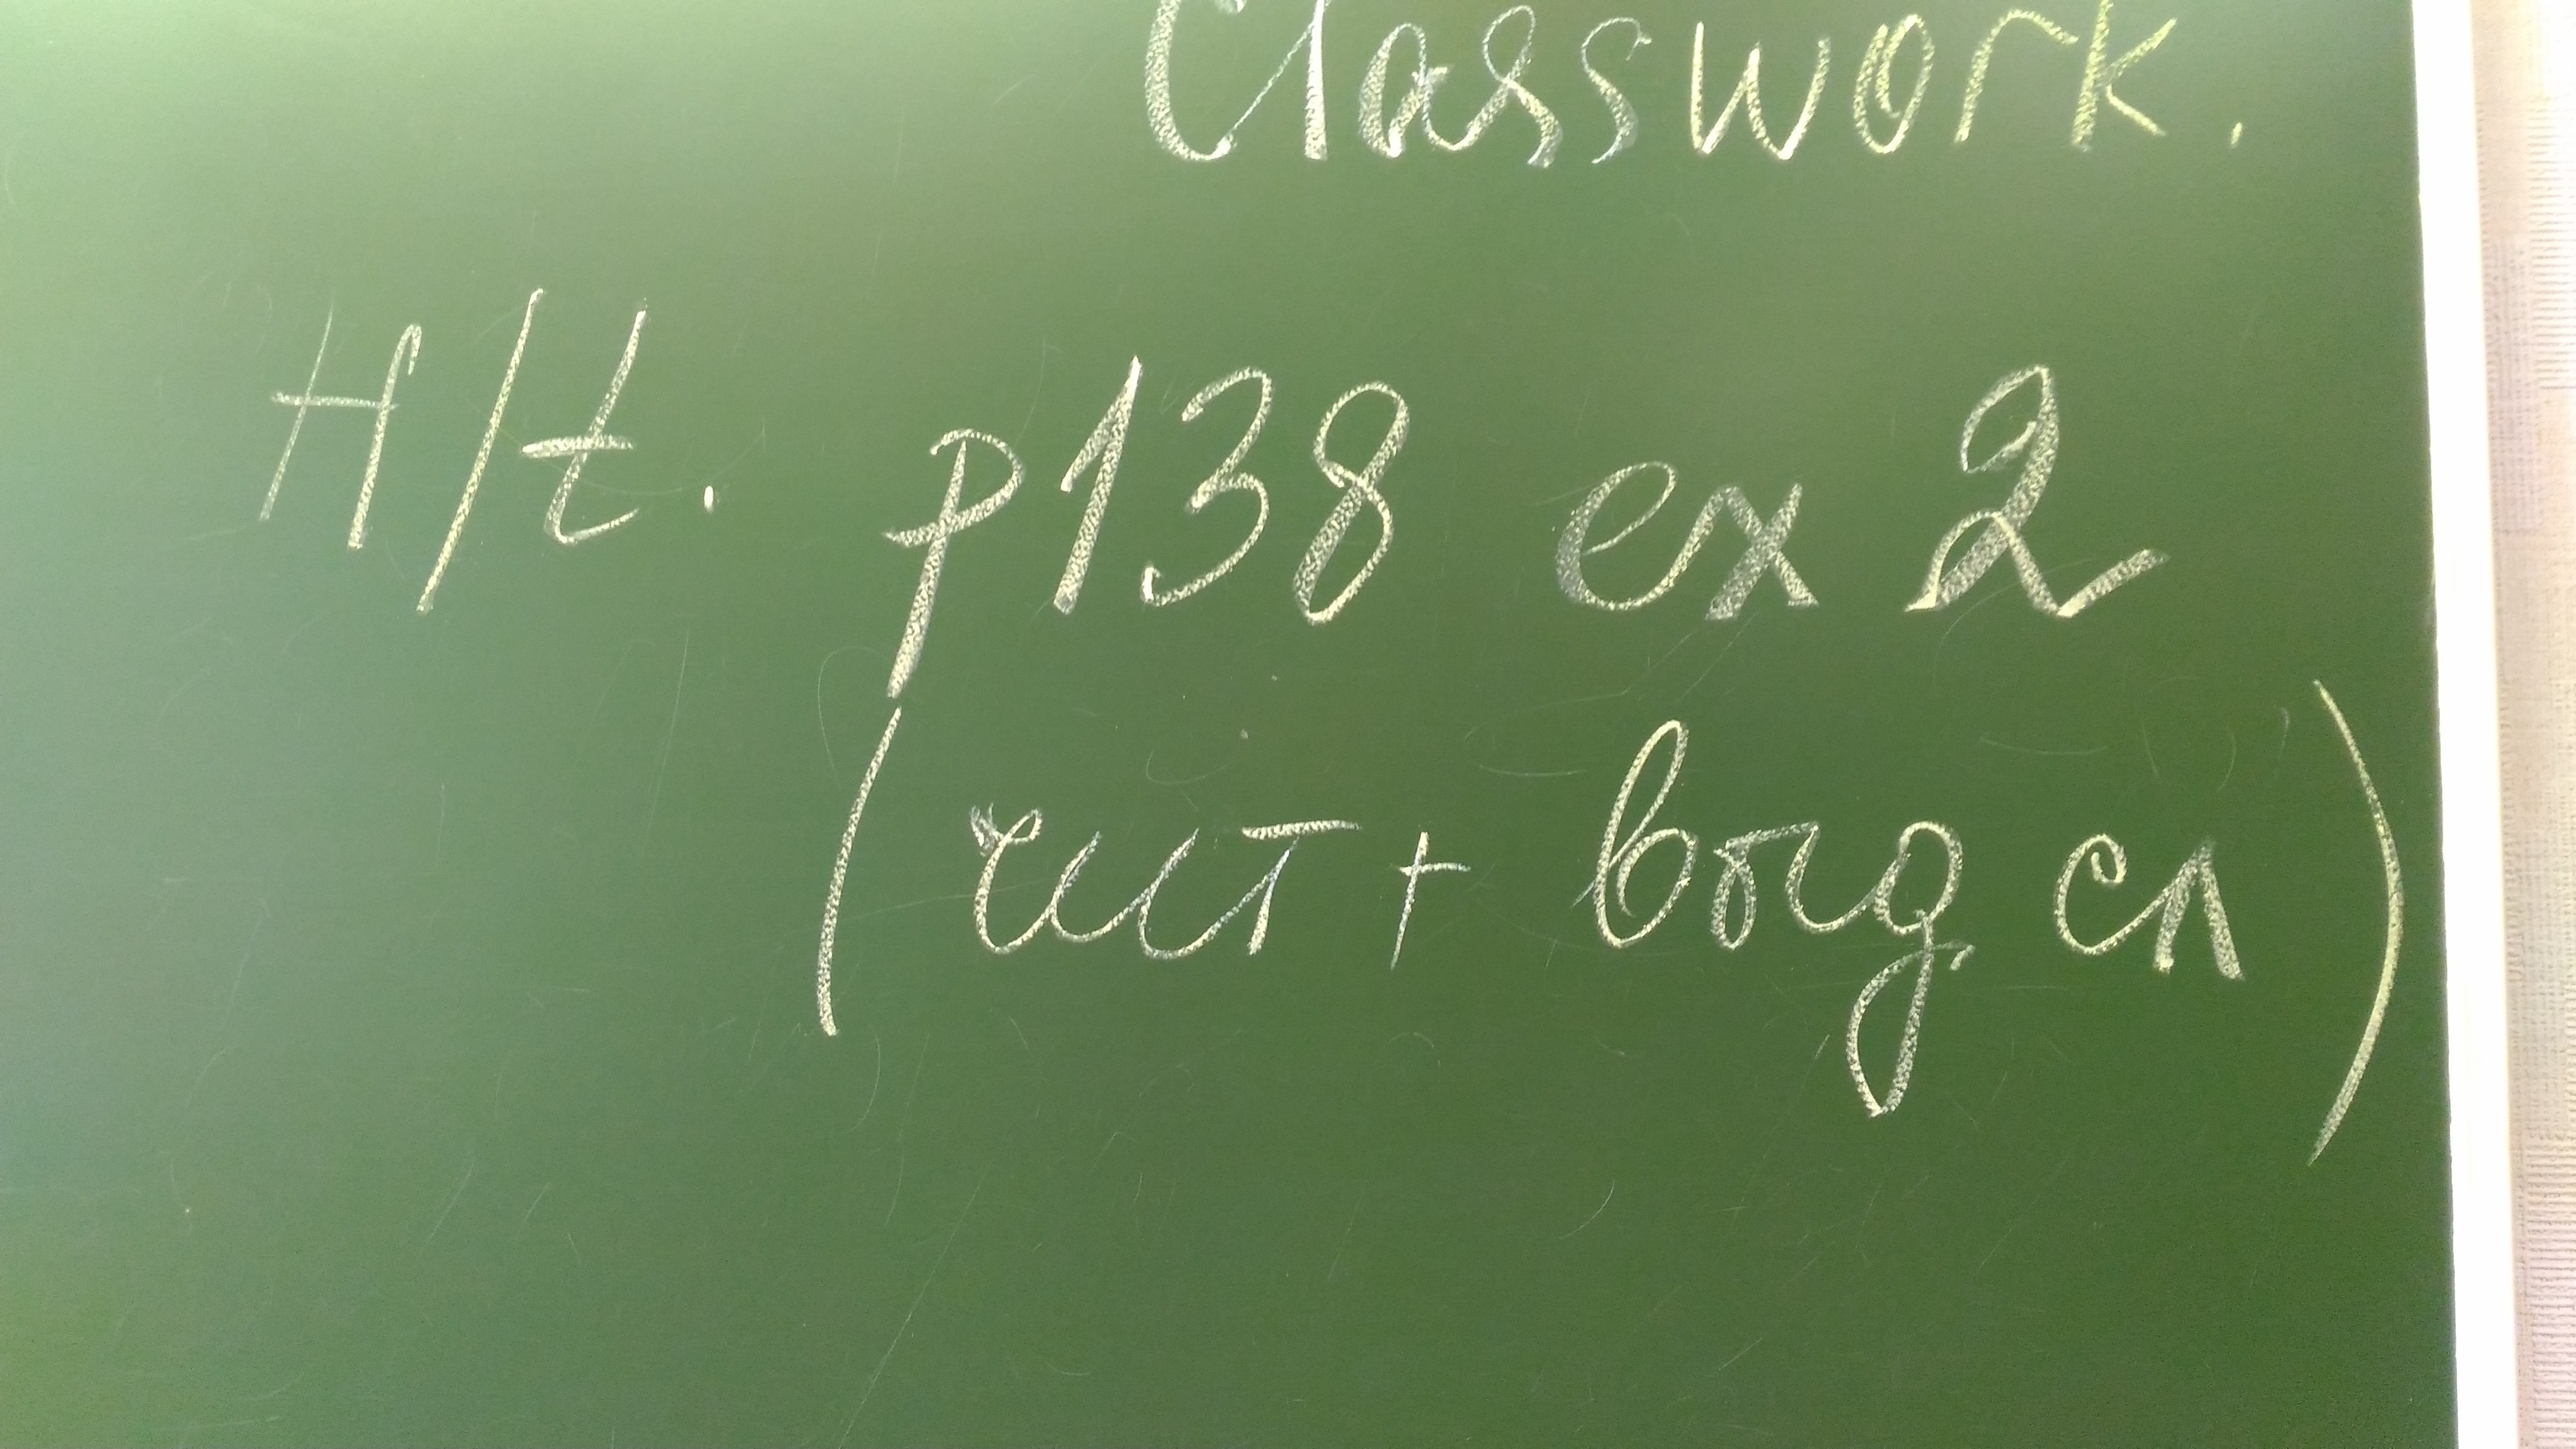 Classwork.
H/t. p138 ex 2
(чит + выд сл)